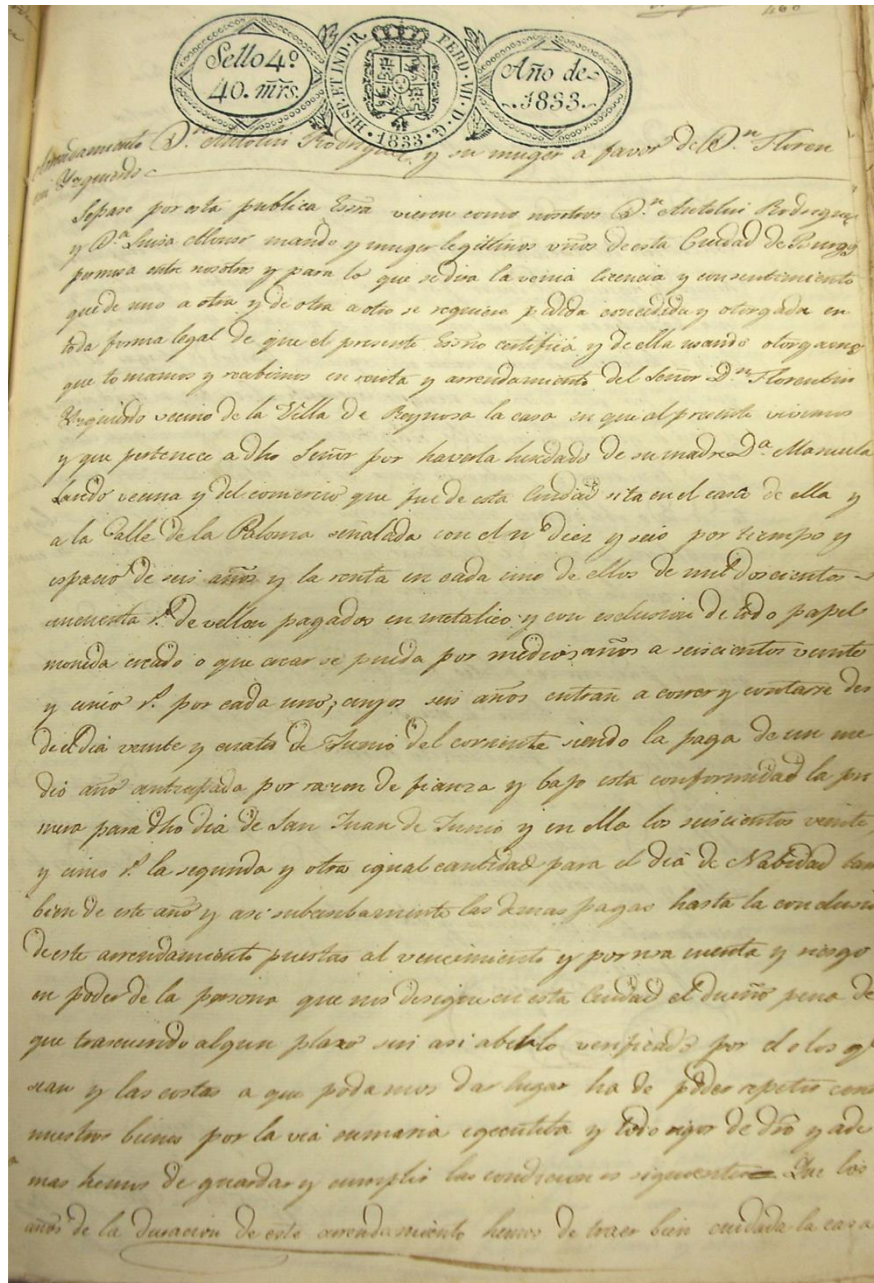 Sello 4º
40. mrs.
HISP. ET IND. R. FERD. VII. D. G. 1833
Año de
1833.
Arrendamiento D.n Antolin Rodriguez y su muger a favor de D.n Floren
Yzquierdo
Sepase por esta publica Essra vieren como nosotros D.n Antolin Rodriguez
y D.a Luisa Alonso marido y muger legitimos vnos de esta Ciudad de Burgs
premisa entre nosotros y para lo que se dira la venia licencia y consentimiento
que de uno a otra y de otra a otro se requiere pedida concedida y otorgada en
toda forma legal de que el presente Essno certifica y de ella usando otorgamos
que tomamos y recibimos en renta y arrendamiento del Señor D.n Florentin
Yzquierdo vecino de la Villa de Reynosa la casa en que al presente vivimos
y que pertenece a dho Señor por haverla heredado de su madre D.a Manuela
vecina y del comercio que fue de esta Ciudad sita en el casco de ella y
a la Calle de la Paloma señalada con el nº diez y seis por tiempo y
espacio de seis años y la renta en cada uno de ellos de mil doscientos
cincuenta r.s de vellon pagados en metalico y con esclusion de todo papel
moneda creado o que crear se pueda por medios años a seiscientos veinte
y cinco r.s por cada uno; cuyos seis años entran a correr y contarse des
de el dia veinte y cuatro de Junio del corriente siendo la paga de un me
dio año anticipada por razon de fianza y bajo esta conformidad la pri
mera para dho dia de San Juan de Junio y en ella los seiscientos veinte
y cinco r.s la segunda y otra igual cantidad para el dia de Nabidad tam
bien de este año y asi subcesibamente las demas pagas hasta la conclusio
de este arrendamiento puestas al vencimiento y por nra cuenta y riesgo
en poder de la persona que nos designe en esta Ciudad el dueño pena de
que trascurrido algun plazo sin asi aberlo verificado por el o los q.e
sean y las costas a que podamos dar lugar ha de poder repetir cont
nuestros bienes por la via sumaria egecutiba y todo rigor de dro y ade
mas hemos de guardar y cumplir las condiciones siguientes = Que los
años de la duracion de este arrendamiento hemos de traer bien cuidada la casa